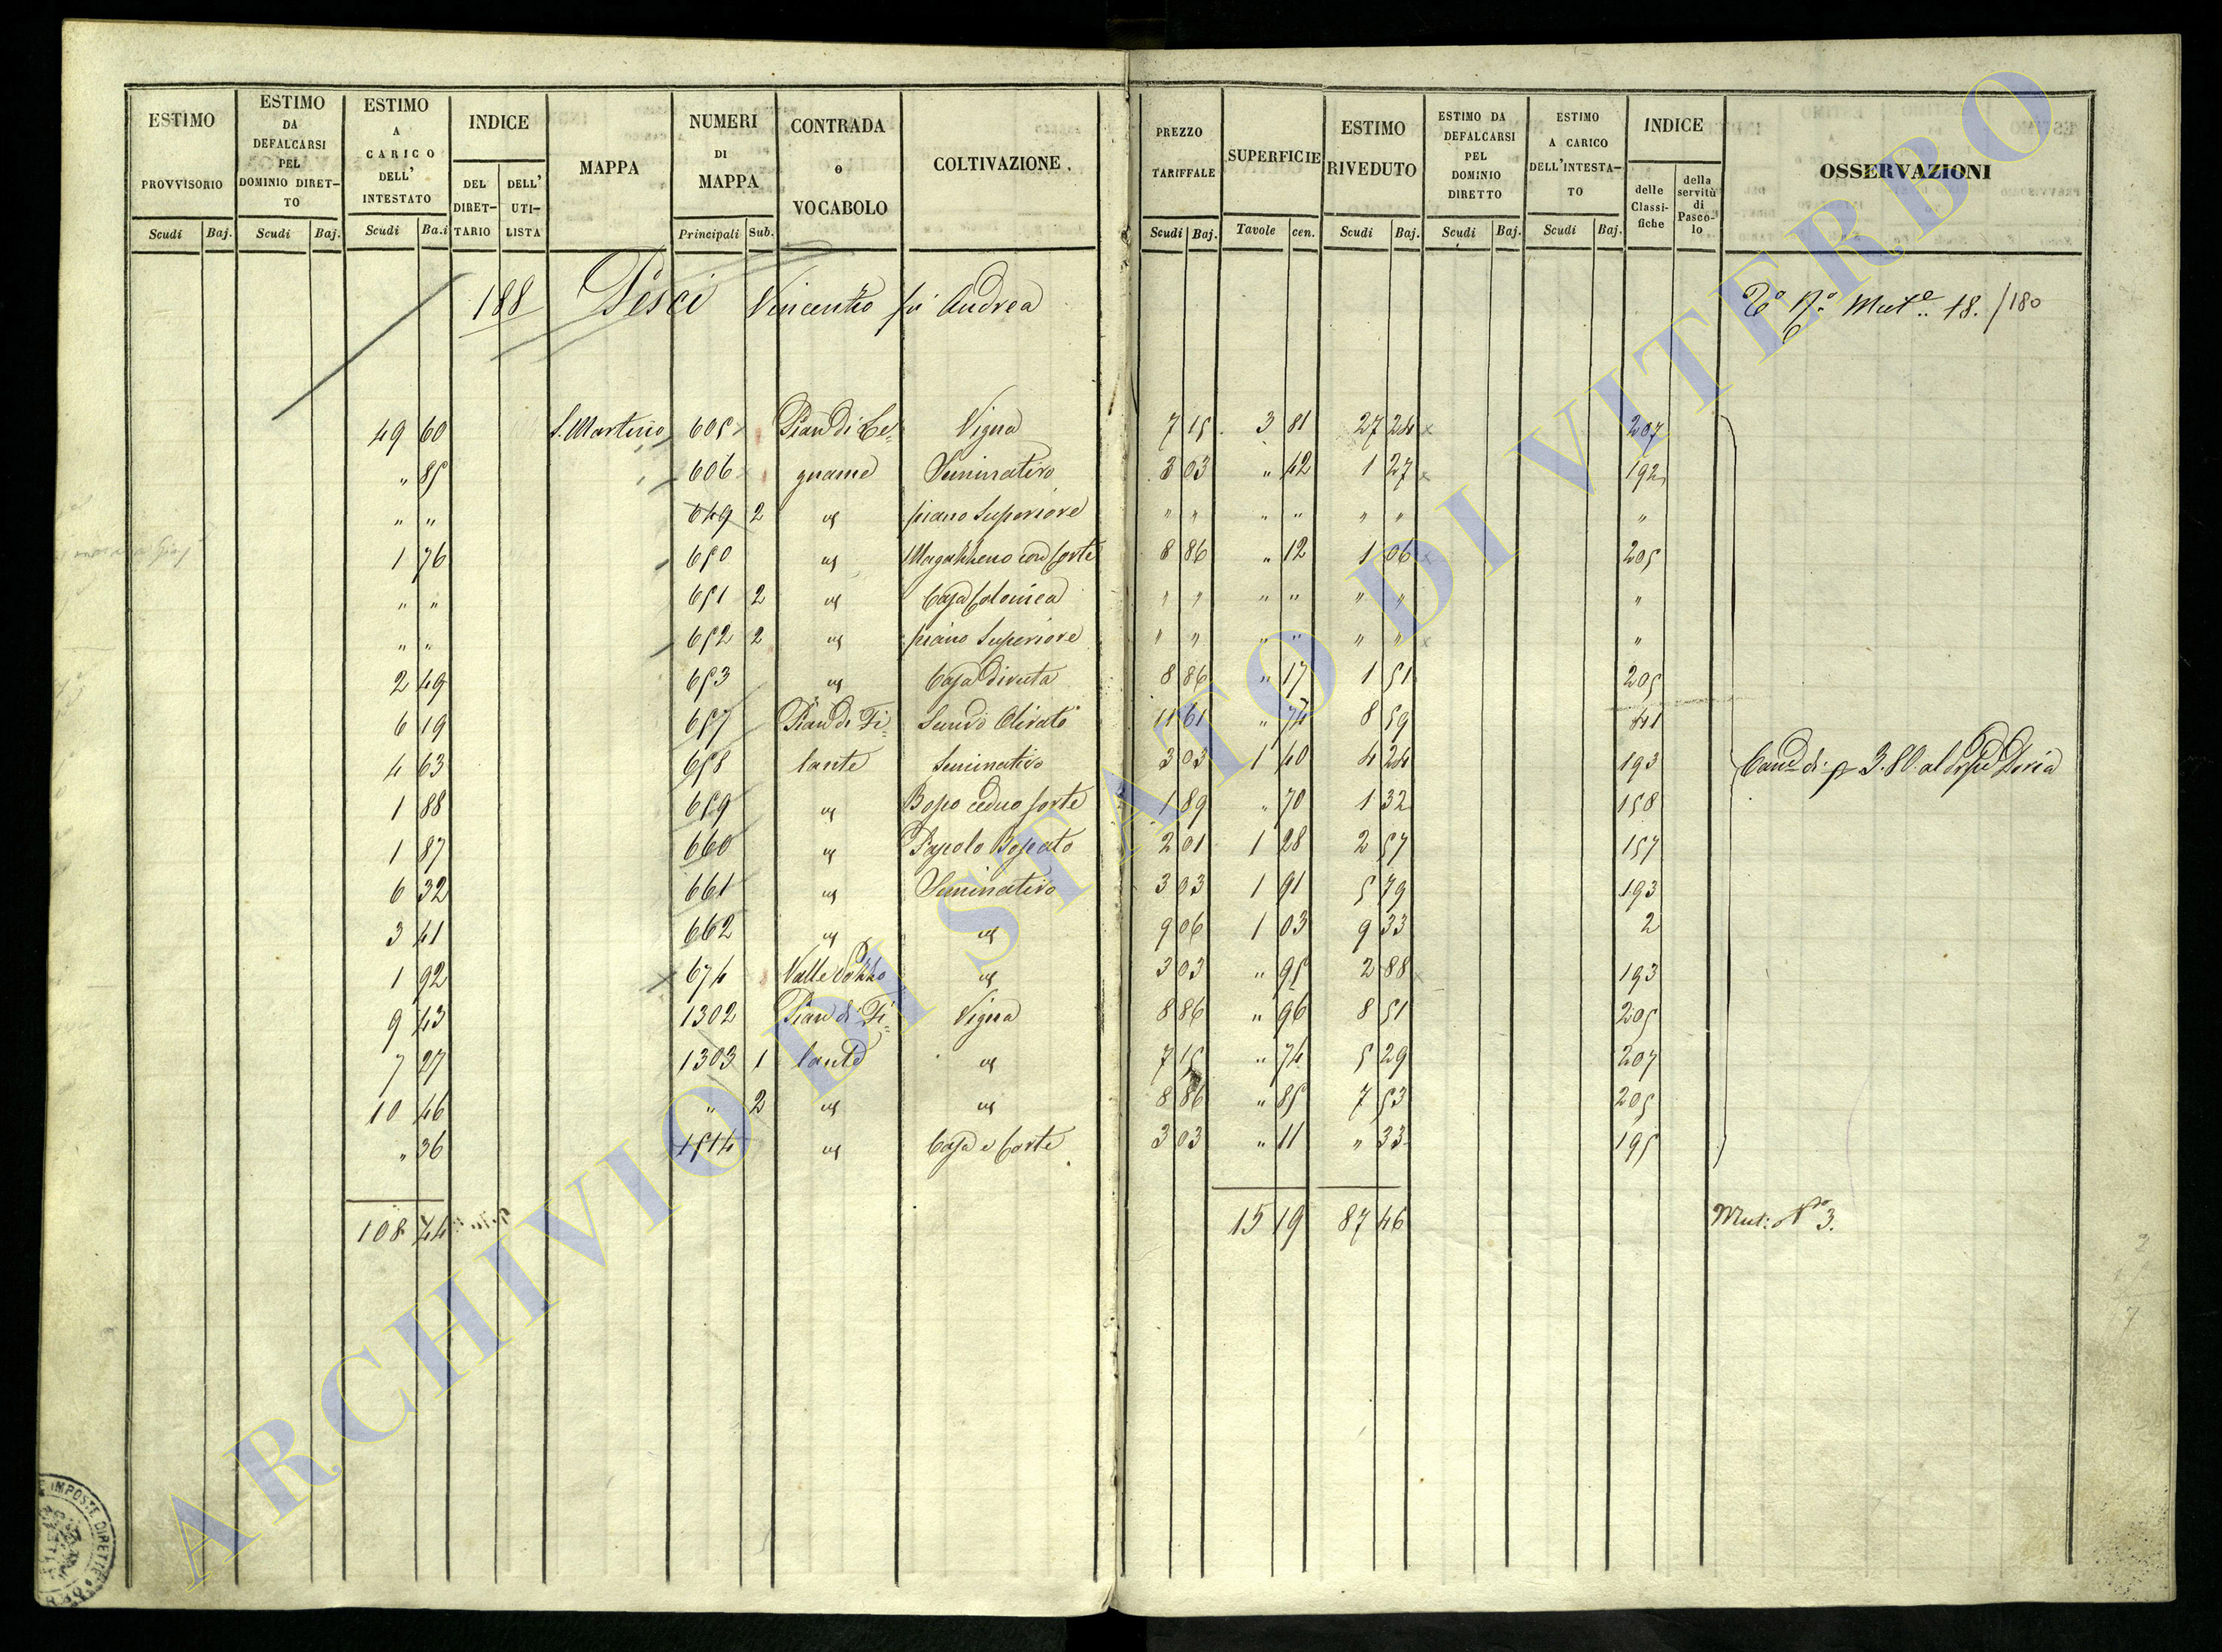 ESTIMO PROVVISORIO Scudi Baj.
ESTIMO DA DEFALCARSI PEL DOMINIO DIRET-TO Scudi Baj.
ESTIMO A CARICO DELL' INTESTATO Scudi Ba.i
INDICE DEL DIRET-TARIO DELL' UTI-LISTA
MAPPA
NUMERI DI MAPPA Principali Sub.
CONTRADA o VOCABOLO
COLTIVAZIONE.
PREZZO TARIFFALE Scudi Baj.
SUPERFICIE Tavole cen.
ESTIMO RIVEDUTO Scudi Baj.
ESTIMO DA DEFALCARSI PEL DOMINIO DIRETTO Scudi Baj.
ESTIMO A CARICO DELL'INTESTA-TO Scudi Baj.
INDICE delle Classi-fiche della servitù di Pasco-lo
OSSERVAZIONI
188 Pesci Vincenzo fù Andrea Mut.e 18. /180
49 60 S. Martino 605 Pian di Le= Vigna 7 15 3 81 27 24 207
" 85 606 gname Seminativo 3 03 " 42 1 27 192
" " 649 2 " piano Superiore " " " " " " "
1 76 650 " Magazzeno con Corte 8 86 " 12 1 06 205
" " 651 2 " Casa Colonica " " " " " " "
" " 652 2 " piano Superiore " " " " " " "
2 49 653 " Casa diruta 8 86 " 17 1 51 205
6 19 657 Pian di Fi= Olivato 11 61 " 74 8 59 41
4 63 658 lante Seminativo 3 03 1 40 4 24 193 3.80. al Doria
1 88 659 " Bosco ceduo forte 1 89 " 70 1 32 158
1 87 660 " Pascolo Boscato 2 01 1 28 2 57 157
6 32 661 " Seminativo 3 03 1 91 5 79 193
3 41 662 " " 9 06 1 03 9 33 2
1 92 674 Valle " 3 03 " 95 2 88 193
9 43 1302 Pian di Fi= Vigna 8 86 " 96 8 51 205
7 27 1303 1 lante " 7 15 " 74 5 29 207
10 46 " 2 " " 8 86 " 85 7 53 205
" 36 1514 " Casa e Corte 3 03 " 11 " 33 195
108 74 15 19 87 46 Mut: N° 3.
ARCHIVIO DI STATO DI VITERBO
IMPOSTE DIRETTE